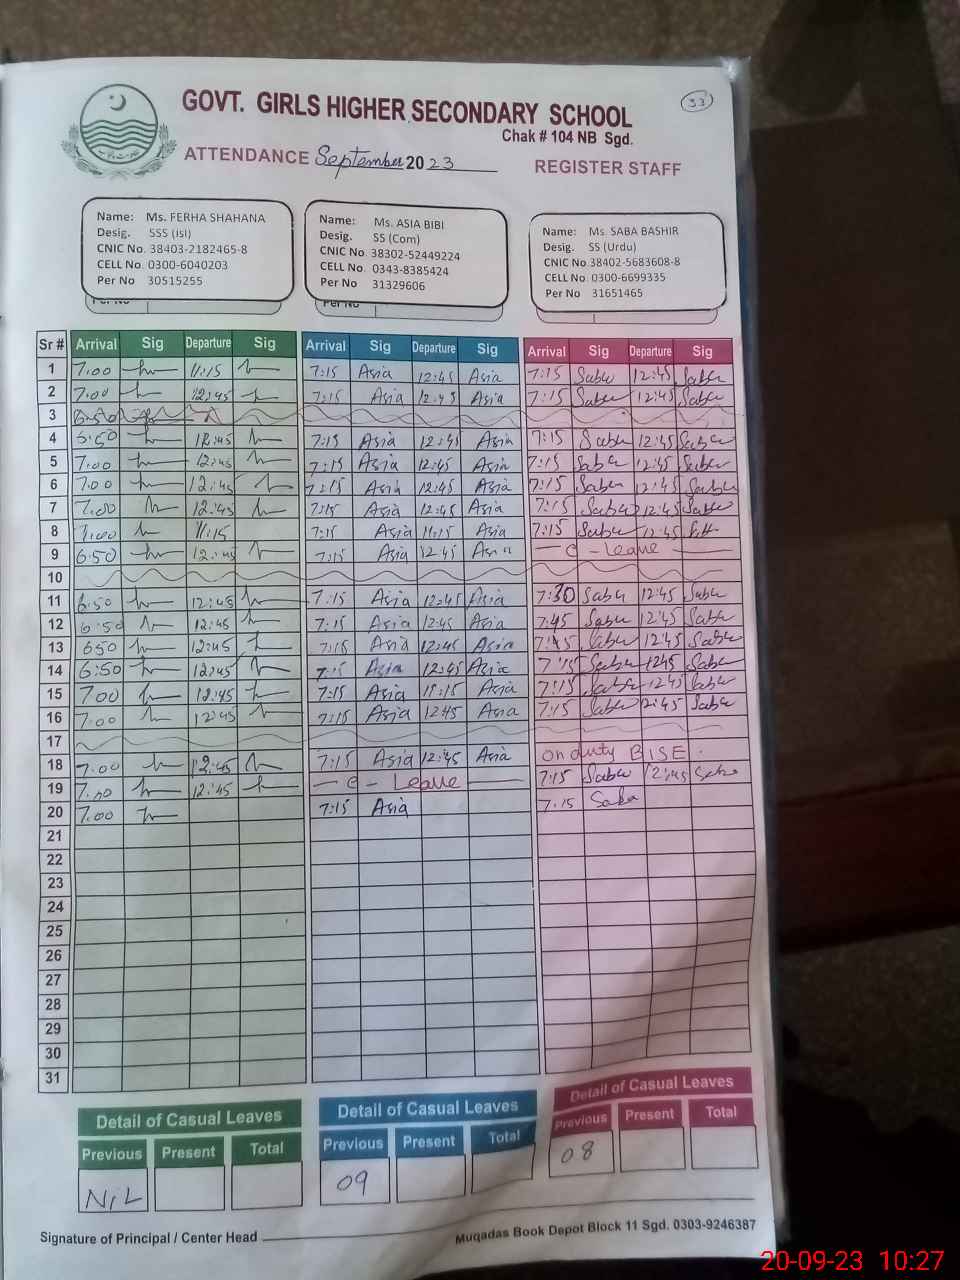 33
GOVT. GIRLS HIGHER SECONDARY SCHOOL
Chak # 104 NB Sgd.
ATTENDANCE September 2023 REGISTER STAFF
Name: Ms. FERHA SHAHANA
Desig. SSS (Isl)
CNIC No. 38403-2182465-8
CELL No. 0300-6040203
Per No 30515255
Per No
Name: Ms. ASIA BIBI
Desig. SS (Com)
CNIC No 38302-52449224
CELL No. 0343-8385424
Per No 31329606
Per No
Name: Ms. SABA BASHIR
Desig. SS (Urdu)
CNIC No. 38402-5683608-8
CELL No. 0300-6699335
Per No 31651465
Sr # Arrival Sig Departure Sig Arrival Sig Departure Sig Arrival Sig Departure Sig
1 7.00 11:15 7:15 Asia 12:45 Asia 7:15 Saba 12:45 Saba
2 7.00 12:45 7:15 Asia 12:45 Asia 7:15 Saba 12:45 Saba
3 6:50
4 6:50 12:45 7:15 Asia 12:45 Asia 7:15 Saba 12:45 Saba
5 7.00 12:45 7:15 Asia 12:45 Asia 7:15 Saba 12:45 Saba
6 7.00 12:45 7:15 Asia 12:45 Asia 7:15 Saba 12:45 Saba
7 7.00 12:45 7:15 Asia 12:45 Asia 7:15 Saba 12:45 Saba
8 7.00 11:15 7:15 Asia 11:15 Asia 7:15 Saba 12:45
9 6:50 12:45 7:15 Asia 12:45 Asia C - Leave
10
11 6:50 12:45 7:15 Asia 12:45 Asia 7:30 Saba 12:45 Saba
12 6:50 12:45 7:15 Asia 12:45 Asia 7:45 Saba 12:45 Saba
13 650 12:45 7:15 Asia 12:45 Asia Saba 12:45 Saba
14 6:50 12:45 7:15 Asia 12:45 Asia 7:15 Saba 1245 Saba
15 700 12:45 7:15 Asia 11:15 Asia 7:15 Saba 12:45 Saba
16 7:00 12:45 7:15 Asia 12:45 Asia 7:15 Saba 12:45 Saba
17
18 7.00 12:45 7:15 Asia 12:45 Asia on duty BISE.
19 7.00 12:45 C - Leave 7:15 Saba 12:45 Saba
20 7.00 7:15 Asia 7:15 Saba
21
22
23
24
25
26
27
28
29
30
31
Detail of Casual Leaves Detail of Casual Leaves Detail of Casual Leaves
Previous Present Total Previous Present Total Previous Present Total
NIL 09 08
Signature of Principal / Center Head
Muqadas Book Depot Block 11 Sgd. 0303-9246387
20-09-23 10:27